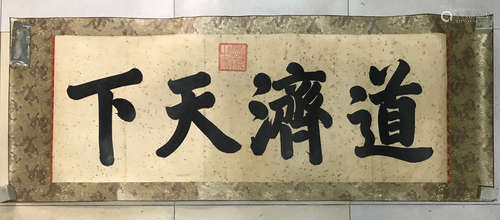 道濟天下